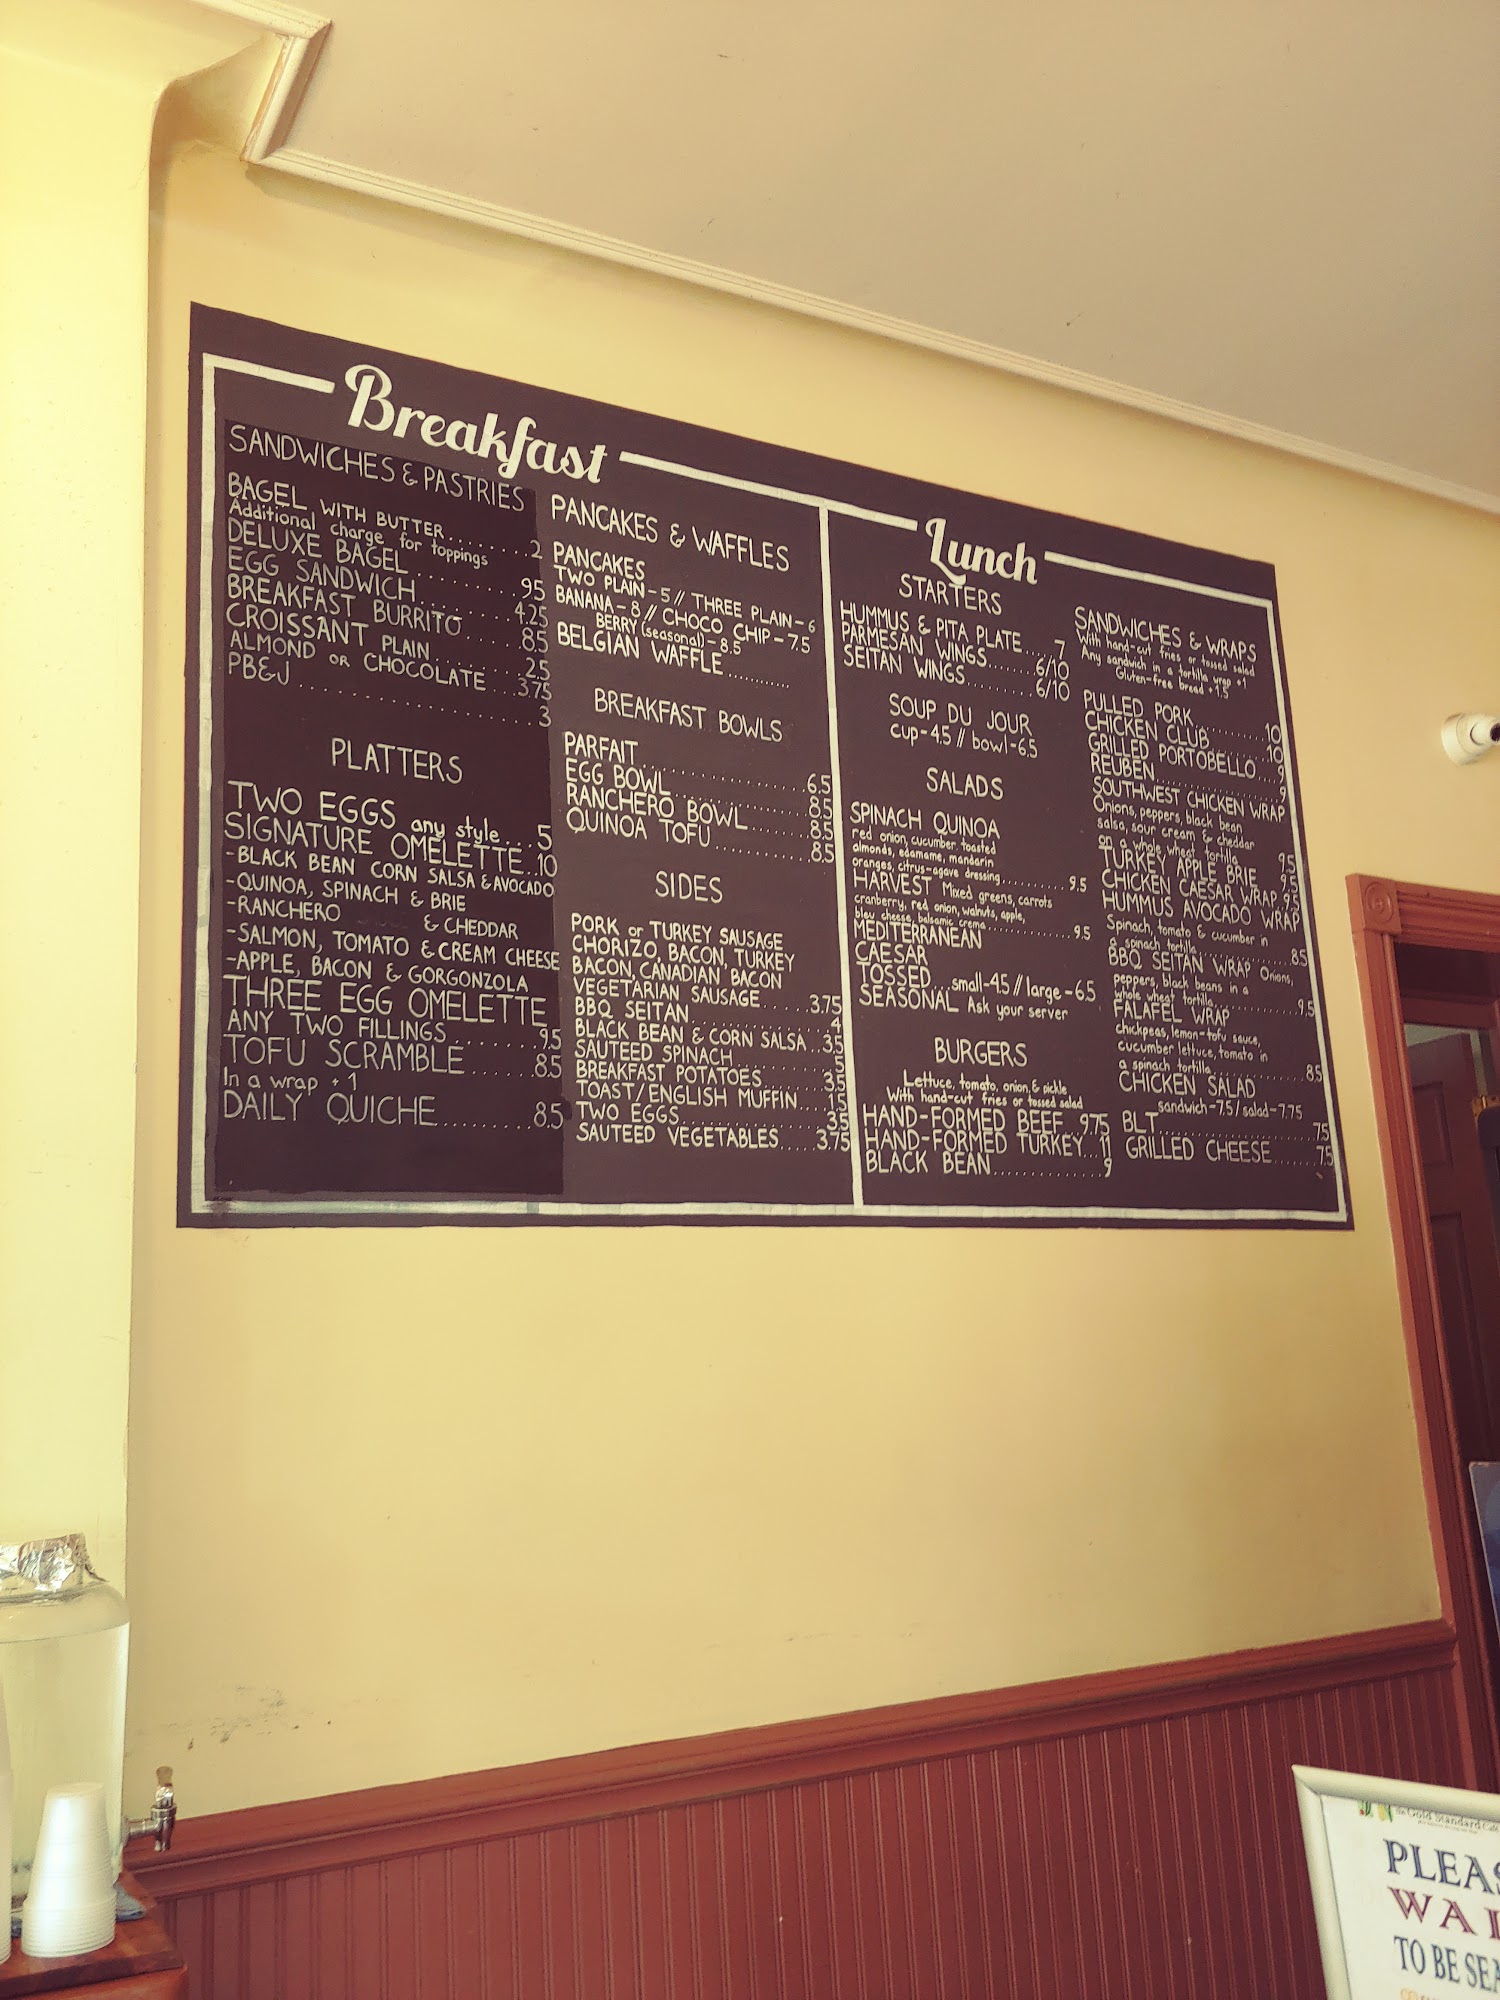 Breakfast
SANDWICHES & PASTRIES
BAGEL WITH BUTTER........2
Additional charge for toppings
DELUXE BAGEL..........95
EGG SANDWICH........4.25
BREAKFAST BURRITO.....8.5
CROISSANT PLAIN.......2.5
ALMOND OR CHOCOLATE...3.75
PB&J....................3
PLATTERS
TWO EGGS any style...5
SIGNATURE OMELETTE..10
-BLACK BEAN CORN SALSA & AVOCADO
-QUINOA, SPINACH & BRIE
-RANCHERO & CHEDDAR
-SALMON, TOMATO & CREAM CHEESE
-APPLE, BACON & GORGONZOLA
THREE EGG OMELETTE
ANY TWO FILLINGS........9.5
TOFU SCRAMBLE......8.5
In a wrap +1
DAILY QUICHE........8.5
PANCAKES & WAFFLES
PANCAKES
TWO PLAIN-5 // THREE PLAIN-6
BANANA-8 // CHOCO CHIP-7.5
BERRY (seasonal)-8.5
BELGIAN WAFFLE...........
BREAKFAST BOWLS
PARFAIT.................6.5
EGG BOWL...............8.5
RANCHERO BOWL.......8.5
QUINOA TOFU...........8.5
SIDES
PORK or TURKEY SAUSAGE
CHORIZO, BACON, TURKEY
BACON, CANADIAN BACON
VEGETARIAN SAUSAGE......3.75
BBQ SEITAN................4
BLACK BEAN & CORN SALSA..3.5
SAUTEED SPINACH...........5
BREAKFAST POTATOES.......3.5
TOAST/ENGLISH MUFFIN....1.5
TWO EGGS.................3.5
SAUTEED VEGETABLES.....3.75
Lunch
STARTERS
HUMMUS & PITA PLATE....7
PARMESAN WINGS......6/10
SEITAN WINGS.........6/10
SOUP DU JOUR
cup-4.5 // bowl-6.5
SALADS
SPINACH QUINOA
red onion, cucumber, toasted
almonds, edamame, mandarin
oranges, citrus-agave dressing...........9.5
HARVEST Mixed greens, carrots
cranberry, red onion, walnuts, apple,
bleu cheese, balsamic crema..............9.5
MEDITERRANEAN
CAESAR
TOSSED...small-4.5 // large-6.5
SEASONAL Ask your server
BURGERS
Lettuce, tomato, onion, & pickle
With hand-cut fries or tossed salad
HAND-FORMED BEEF..9.75
HAND-FORMED TURKEY...11
BLACK BEAN.............9
SANDWICHES & WRAPS
With hand-cut fries or tossed salad
Any sandwich in a tortilla wrap +1
Gluten-free bread +1.5
PULLED PORK..........10
CHICKEN CLUB.........10
GRILLED PORTOBELLO...9
REUBEN................9
SOUTHWEST CHICKEN WRAP
Onions, peppers, black bean
salsa, sour cream & cheddar
on a whole wheat tortilla......9.5
TURKEY APPLE BRIE...9.5
CHICKEN CAESAR WRAP.9.5
HUMMUS AVOCADO WRAP
Spinach, tomato & cucumber in
a spinach tortilla..............8.5
BBQ SEITAN WRAP Onions,
peppers, black beans in a
whole wheat tortilla............9.5
FALAFEL WRAP
chickpeas, lemon-tofu sauce,
cucumber lettuce, tomato in
a spinach tortilla..............8.5
CHICKEN SALAD
sandwich-7.5/salad-7.75
BLT....................7.5
GRILLED CHEESE.......7.5
The Gold Standard Café
PLEAS
WAI
TO BE SEA